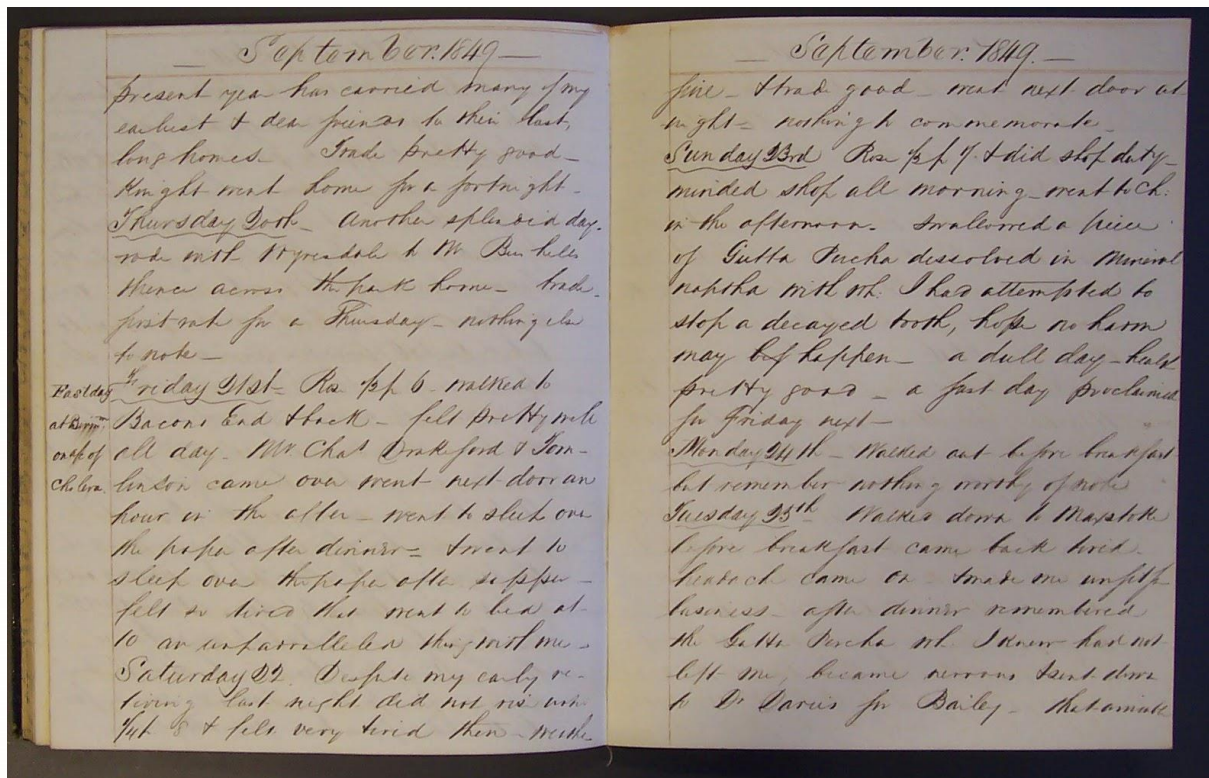 September. 1849
present year has carried many of my
earliest & dear friends to their last,
long homes. Trade pretty good -
Knight went home for a fortnight -
Thursday 20th - Another splendid day.
rode with to Mr
thence across the park home - trade
first rate for a Thursday - nothing else
to note -
Fast day
at Birmm
on a/c of
Cholera
Friday 21st - Rose ½ p 6 - walked to
Bacons End & back - felt pretty well
all day - Mr Chas & Tom-
linson came over went next door an
hour in the after - went to sleep over
the paper after dinner - & went to
sleep over the paper after supper -
felt so tired that went to bed at
10 an unparralleled thing with me -
Saturday 22. Despite my early re-
tiring last night did not rise until
¼ to 8 & felt very tired then - weather
September. 1849.
fine - & trade good - went next door at
night - nothing to commemorate -
Sunday 23rd Rose ½ p 7. & did shop duty -
minded shop all morning - went to Ch:
in the afternoon. Swallowed a piece
of Gutta Percha dessolved in mineral
naptha with wh: I had attempted to
stop a decayed tooth, hope no harm
may happen - a dull day - health
pretty good - a fast day proclaimed
for Friday next -
Monday 24th - Walked out before breakfast
but remember nothing worthy of note
Tuesday 25th Walked down to Maxstoke
before breakfast came back tired -
headach came on & made me unfit for
business - after dinner remembered
the Gutta Percha wh. I knew had not
left me, became nervous & sent down
to Dr Davies for Bailey - that